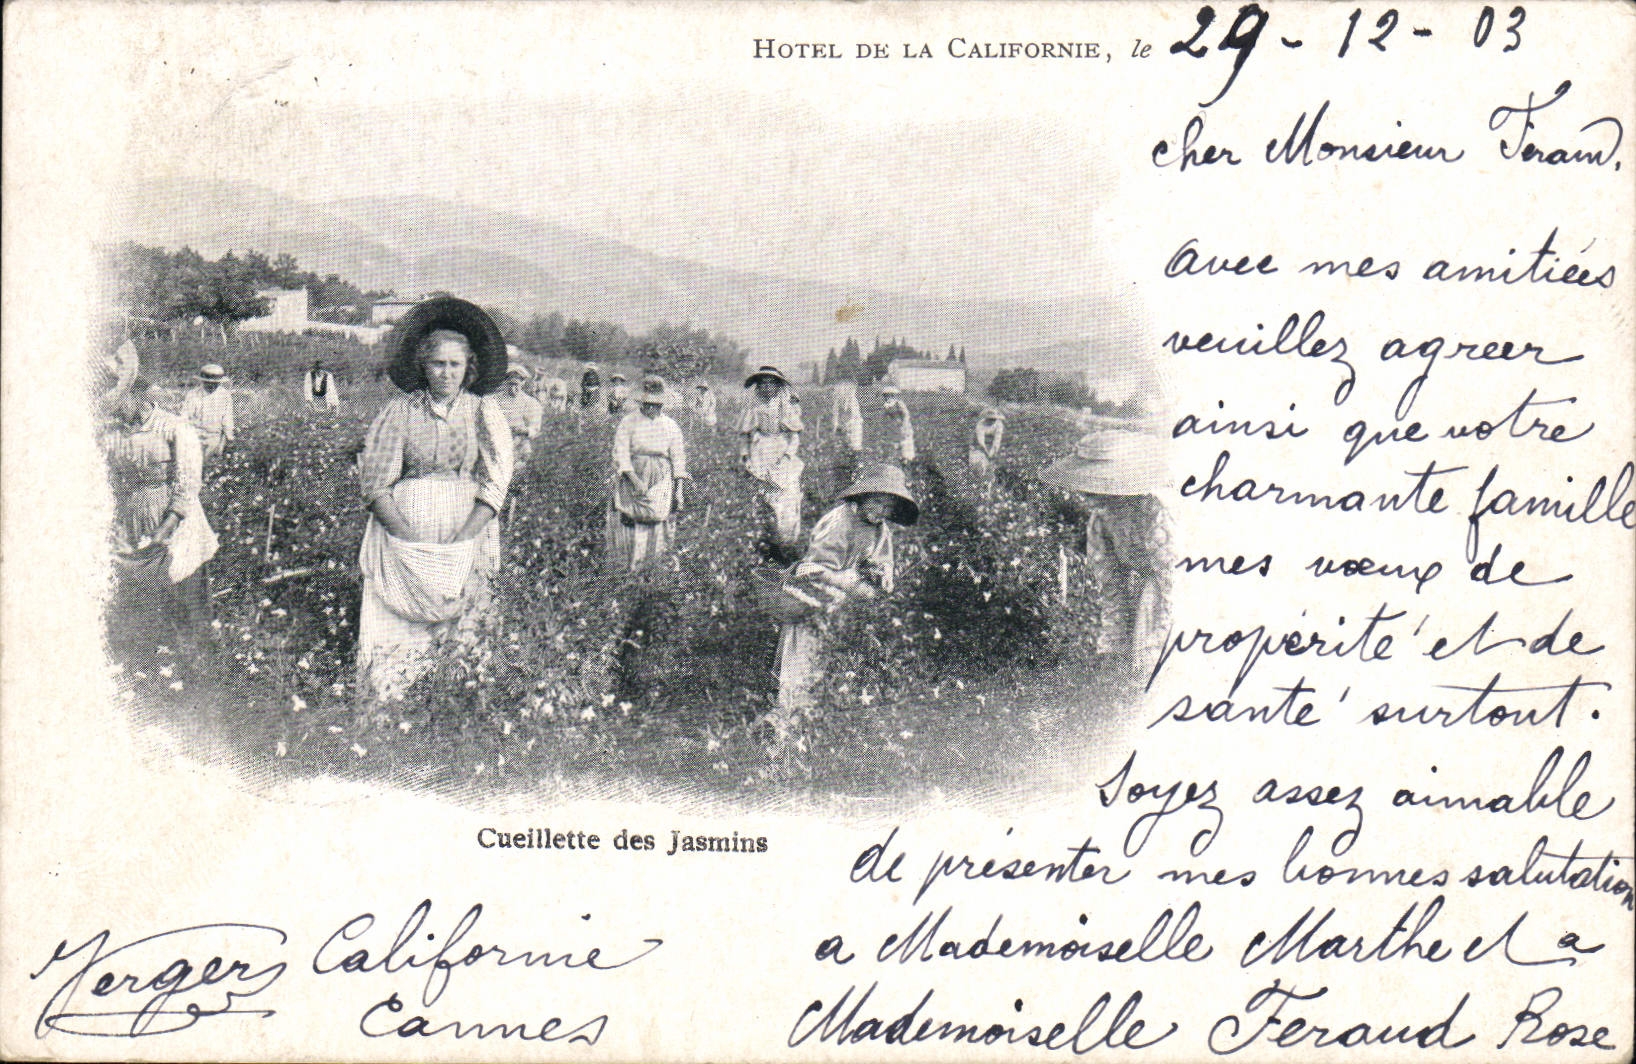 HOTEL DE LA CALIFORNIE, le 29 - 12 - 03
cher Monsieur Feraud,
Avec mes amitiées
veuillez agreer
ainsi que votre
charmante famille
mes vœux de
propérité et de
santé surtout.
Soyez assez aimable
de présenter mes bonnes salutation
a Mademoiselle Marthe et a
Mademoiselle Feraud Rose
Cueillette des Jasmins
Verger Californie
Cannes